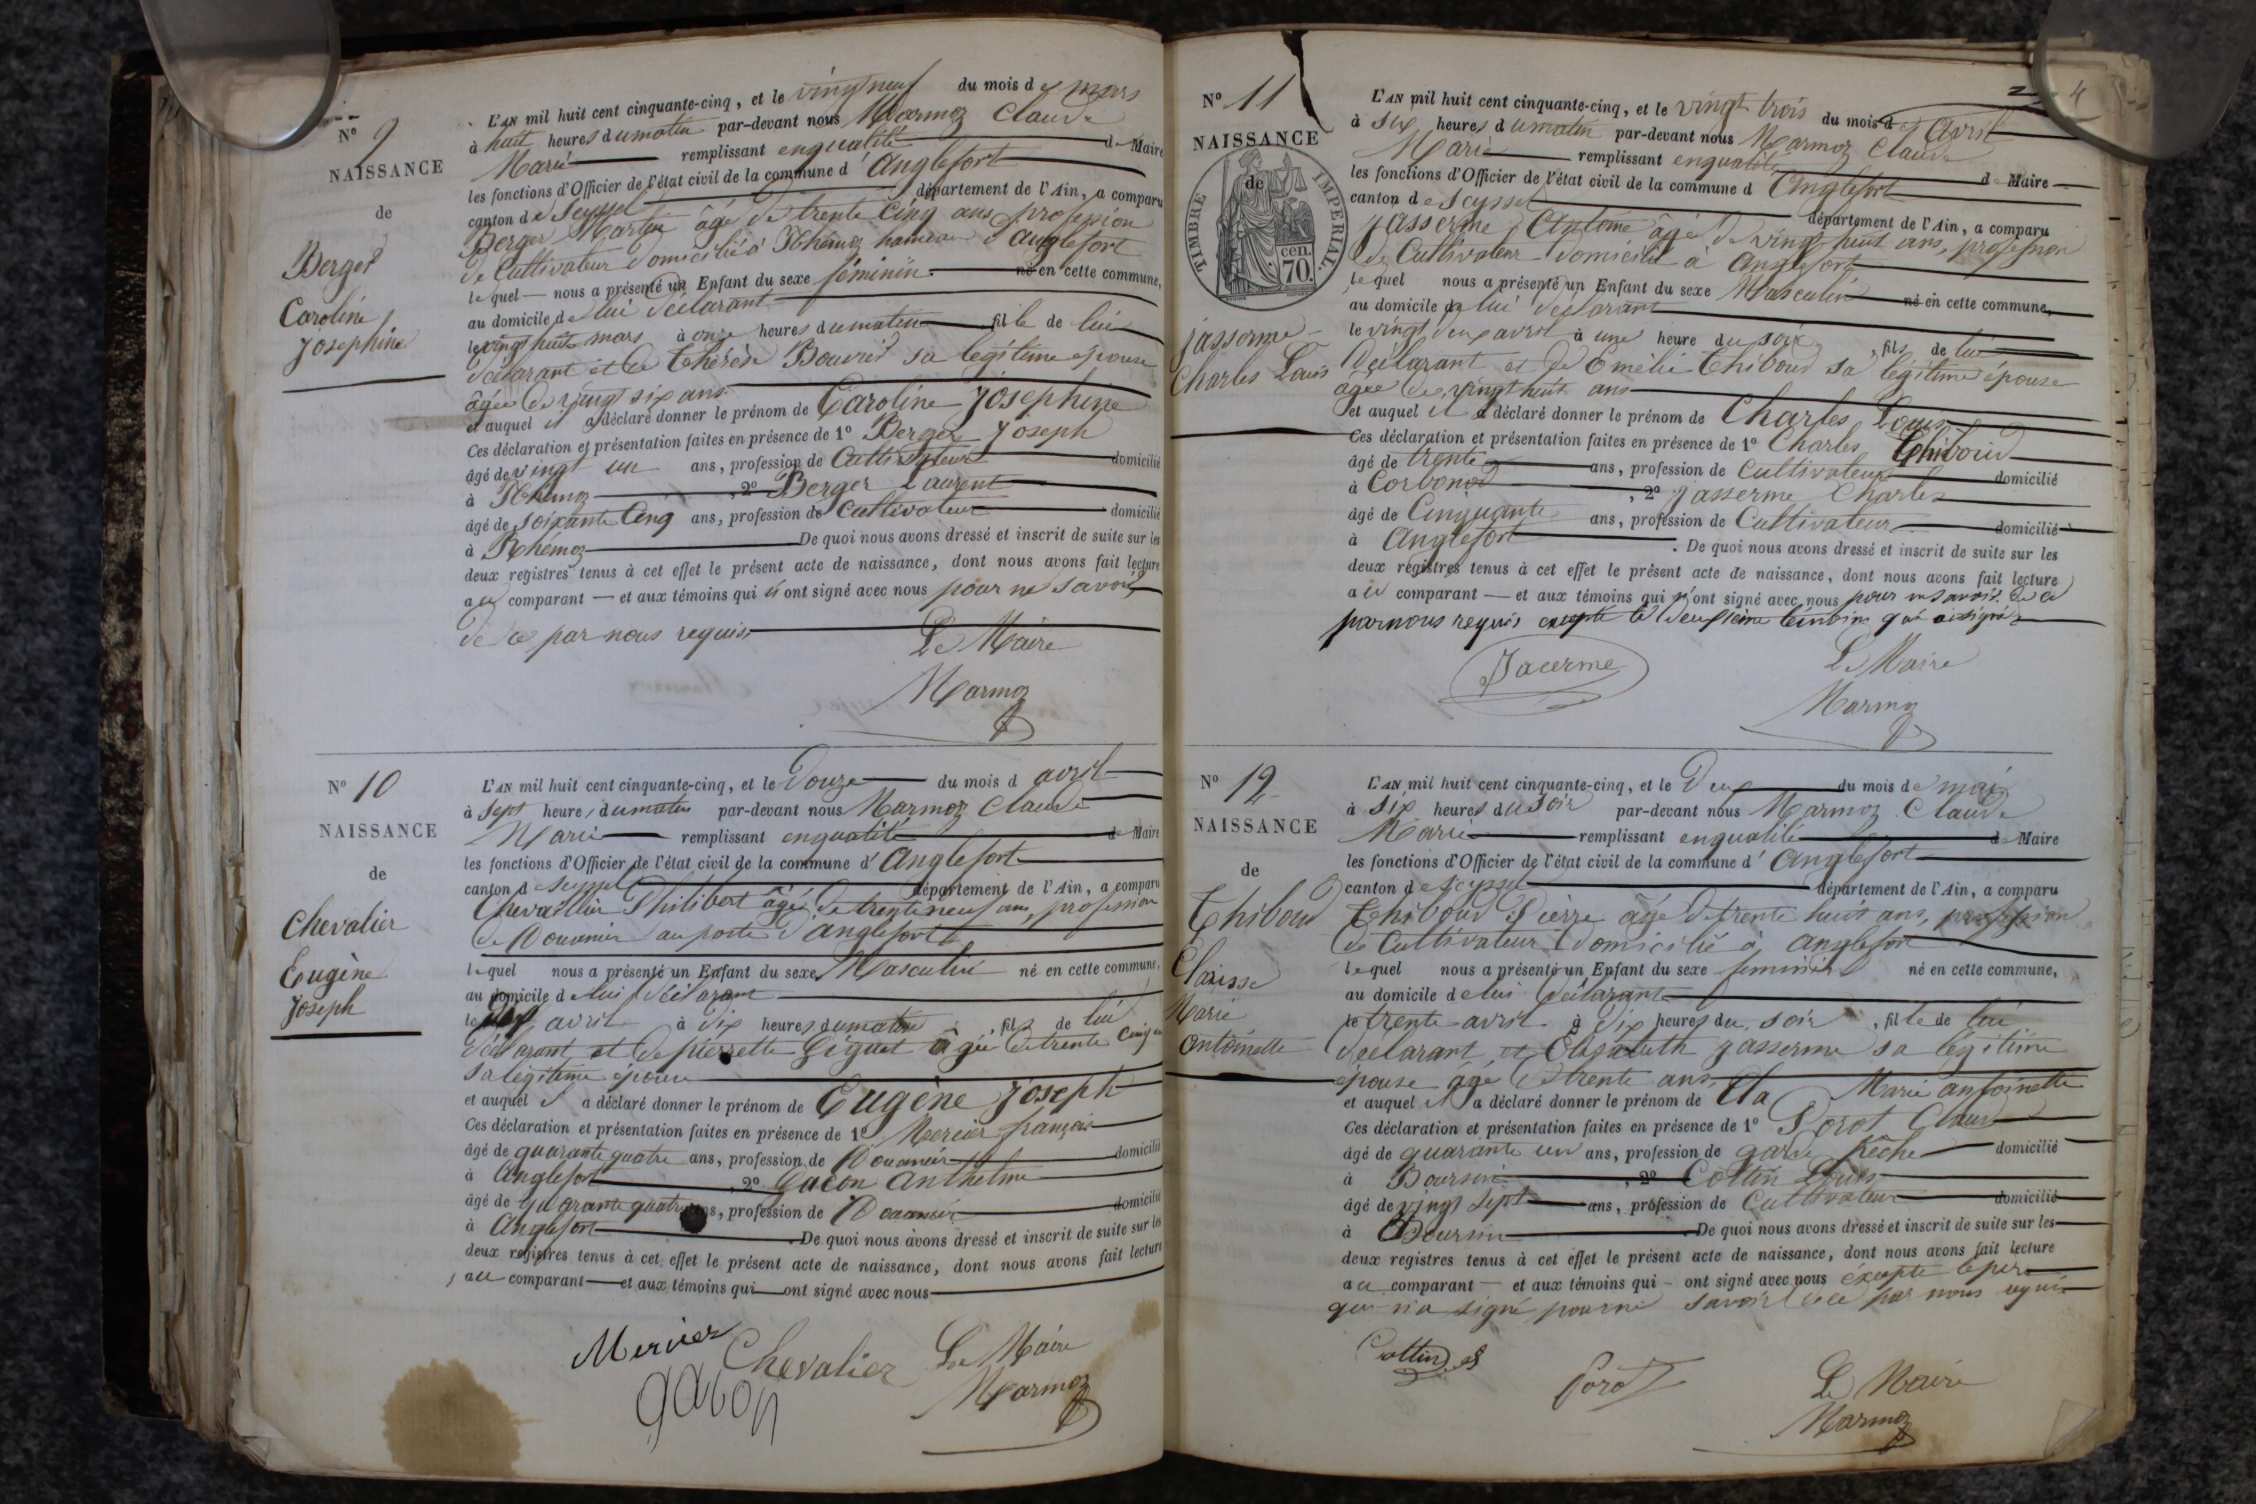 N° 9
NAISSANCE
de
Berger
Caroline
Josephine
L'AN mil huit cent cinquante-cinq, et le vingt neuf du mois de mars
à huit heures du matin par-devant nous Marmoz Claude
Marie remplissant en qualité de Maire
les fonctions d'Officier de l'état civil de la commune d'Anglefort
canton de Seyssel département de l'Ain, a comparu
Berger Martin âgé de trente cinq ans profession
de Cultivateur domicilié à Rhémoz hameau d'Anglefort
lequel nous a présenté un Enfant du sexe féminin né en cette commune,
au domicile de lui déclarant
le vingt huit mars à onze heures du matin fille de lui
déclarant et de Thérèse Bouvier sa légitime épouse
âgée de vingt six ans
et auquel il a déclaré donner le prénom de Caroline Joséphine
Ces déclaration et présentation faites en présence de 1° Berger Joseph
âgé de vingt un ans, profession de Cultivateur domicilié
à Rhémoz , 2° Berger Laurent
âgé de soixante cinq ans, profession de Cultivateur domicilié
à Rhémoz De quoi nous avons dressé et inscrit de suite sur les
deux registres tenus à cet effet le présent acte de naissance, dont nous avons fait lecture
au comparant — et aux témoins qui n'ont signé avec nous pour ne savoir
de ce par nous requis
Le Maire
Marmoz
N° 10
NAISSANCE
de
Chevalier
Eugène
Joseph
L'AN mil huit cent cinquante-cinq, et le Douze du mois d avril
à sept heures du matin par-devant nous Marmoz Claude
Marie remplissant en qualité de Maire
les fonctions d'Officier de l'état civil de la commune d'Anglefort
canton de Seyssel département de l'Ain, a comparu
Chevallier Philibert âgé de trente neuf ans, profession
de Douanier au poste d'anglefort
lequel nous a présenté un Enfant du sexe Masculin né en cette commune,
au domicile de lui déclarant
le avril à dix heures du matin , fils de lui
déclarant et de pierrette Giguet âgée de trente cinq ans
sa légitime épouse
et auquel il a déclaré donner le prénom de Eugène Joseph
Ces déclaration et présentation faites en présence de 1° Mercier françois
âgé de quarante quatre ans, profession de Douanier domicilié
à Anglefort , 2° Gacon Anthelme
âgé de quarante quatre ans, profession de Douanier domicilié
à Anglefort . De quoi nous avons dressé et inscrit de suite sur les
deux registres tenus à cet effet le présent acte de naissance, dont nous avons fait lecture
au comparant — et aux témoins qui ont signé avec nous
Mercier Chevalier Le Maire
gacon Marmoz
4
N° 11
NAISSANCE
de
TIMBRE IMPERIAL.
70 cen.
jasserme
Charles Louis
L'AN mil huit cent cinquante-cinq, et le vingt trois du mois d'Avril
à six heures du matin par-devant nous Marmoz Claude
Marie remplissant en qualité de Maire
les fonctions d'Officier de l'état civil de la commune d Anglefort
canton de Seyssel département de l'Ain, a comparu
jasserme Antoine âgé de vingt huit ans, profession
de Cultivateur domicilié à Anglefort
lequel nous a présenté un Enfant du sexe Masculin né en cette commune,
au domicile de lui déclarant
le vingt deux avril à une heure du soir , fils de lui
déclarant et de Emélie Thiboud sa légitime épouse
âgée de vingt huit ans
et auquel il a déclaré donner le prénom de Charles Louis
Ces déclaration et présentation faites en présence de 1° Charles Thiboud
âgé de trente ans, profession de Cultivateur domicilié
à Corbonod , 2° jasserme Charles
âgé de Cinquante ans, profession de Cultivateur domicilié
à Anglefort . De quoi nous avons dressé et inscrit de suite sur les
deux registres tenus à cet effet le présent acte de naissance, dont nous avons fait lecture
au comparant — et aux témoins qui n'ont signé avec nous pour ne savoir de ce
par nous requis excepté le deuxième témoin qui a signé
Jacerme Le Maire
Marmoz
N° 12
NAISSANCE
de
Thiboud
Clarisse
Marie
Antoinette
L'AN mil huit cent cinquante-cinq, et le Deux du mois de mai
à six heures du soir par-devant nous Marmoz Claude
Marie remplissant en qualité de Maire
les fonctions d'Officier de l'état civil de la commune d'Anglefort
canton de Seyssel département de l'Ain, a comparu
Thiboud Pierre âgé de trente huit ans, profession
de Cultivateur domicilié à Anglefort
lequel nous a présenté un Enfant du sexe féminin né en cette commune,
au domicile de lui déclarant
le trente avril à dix heures du soir , fille de lui
déclarant et Elisabeth jasserme sa légitime
épouse âgé de trente ans
et auquel il a déclaré donner le prénom de Cla Marie antoinette
Ces déclaration et présentation faites en présence de 1° Porot Claude
âgé de quarante un ans, profession de garde pêche domicilié
à Boursin , 2° Cottin Louis
âgé de vingt sept ans, profession de Cultivateur domicilié
à Boursin De quoi nous avons dressé et inscrit de suite sur les
deux registres tenus à cet effet le présent acte de naissance, dont nous avons fait lecture
au comparant — et aux témoins qui ont signé avec nous excepté le père
qui n'a signé pour ne savoir de ce par nous requis
Cottin Porot Le Maire
Marmoz